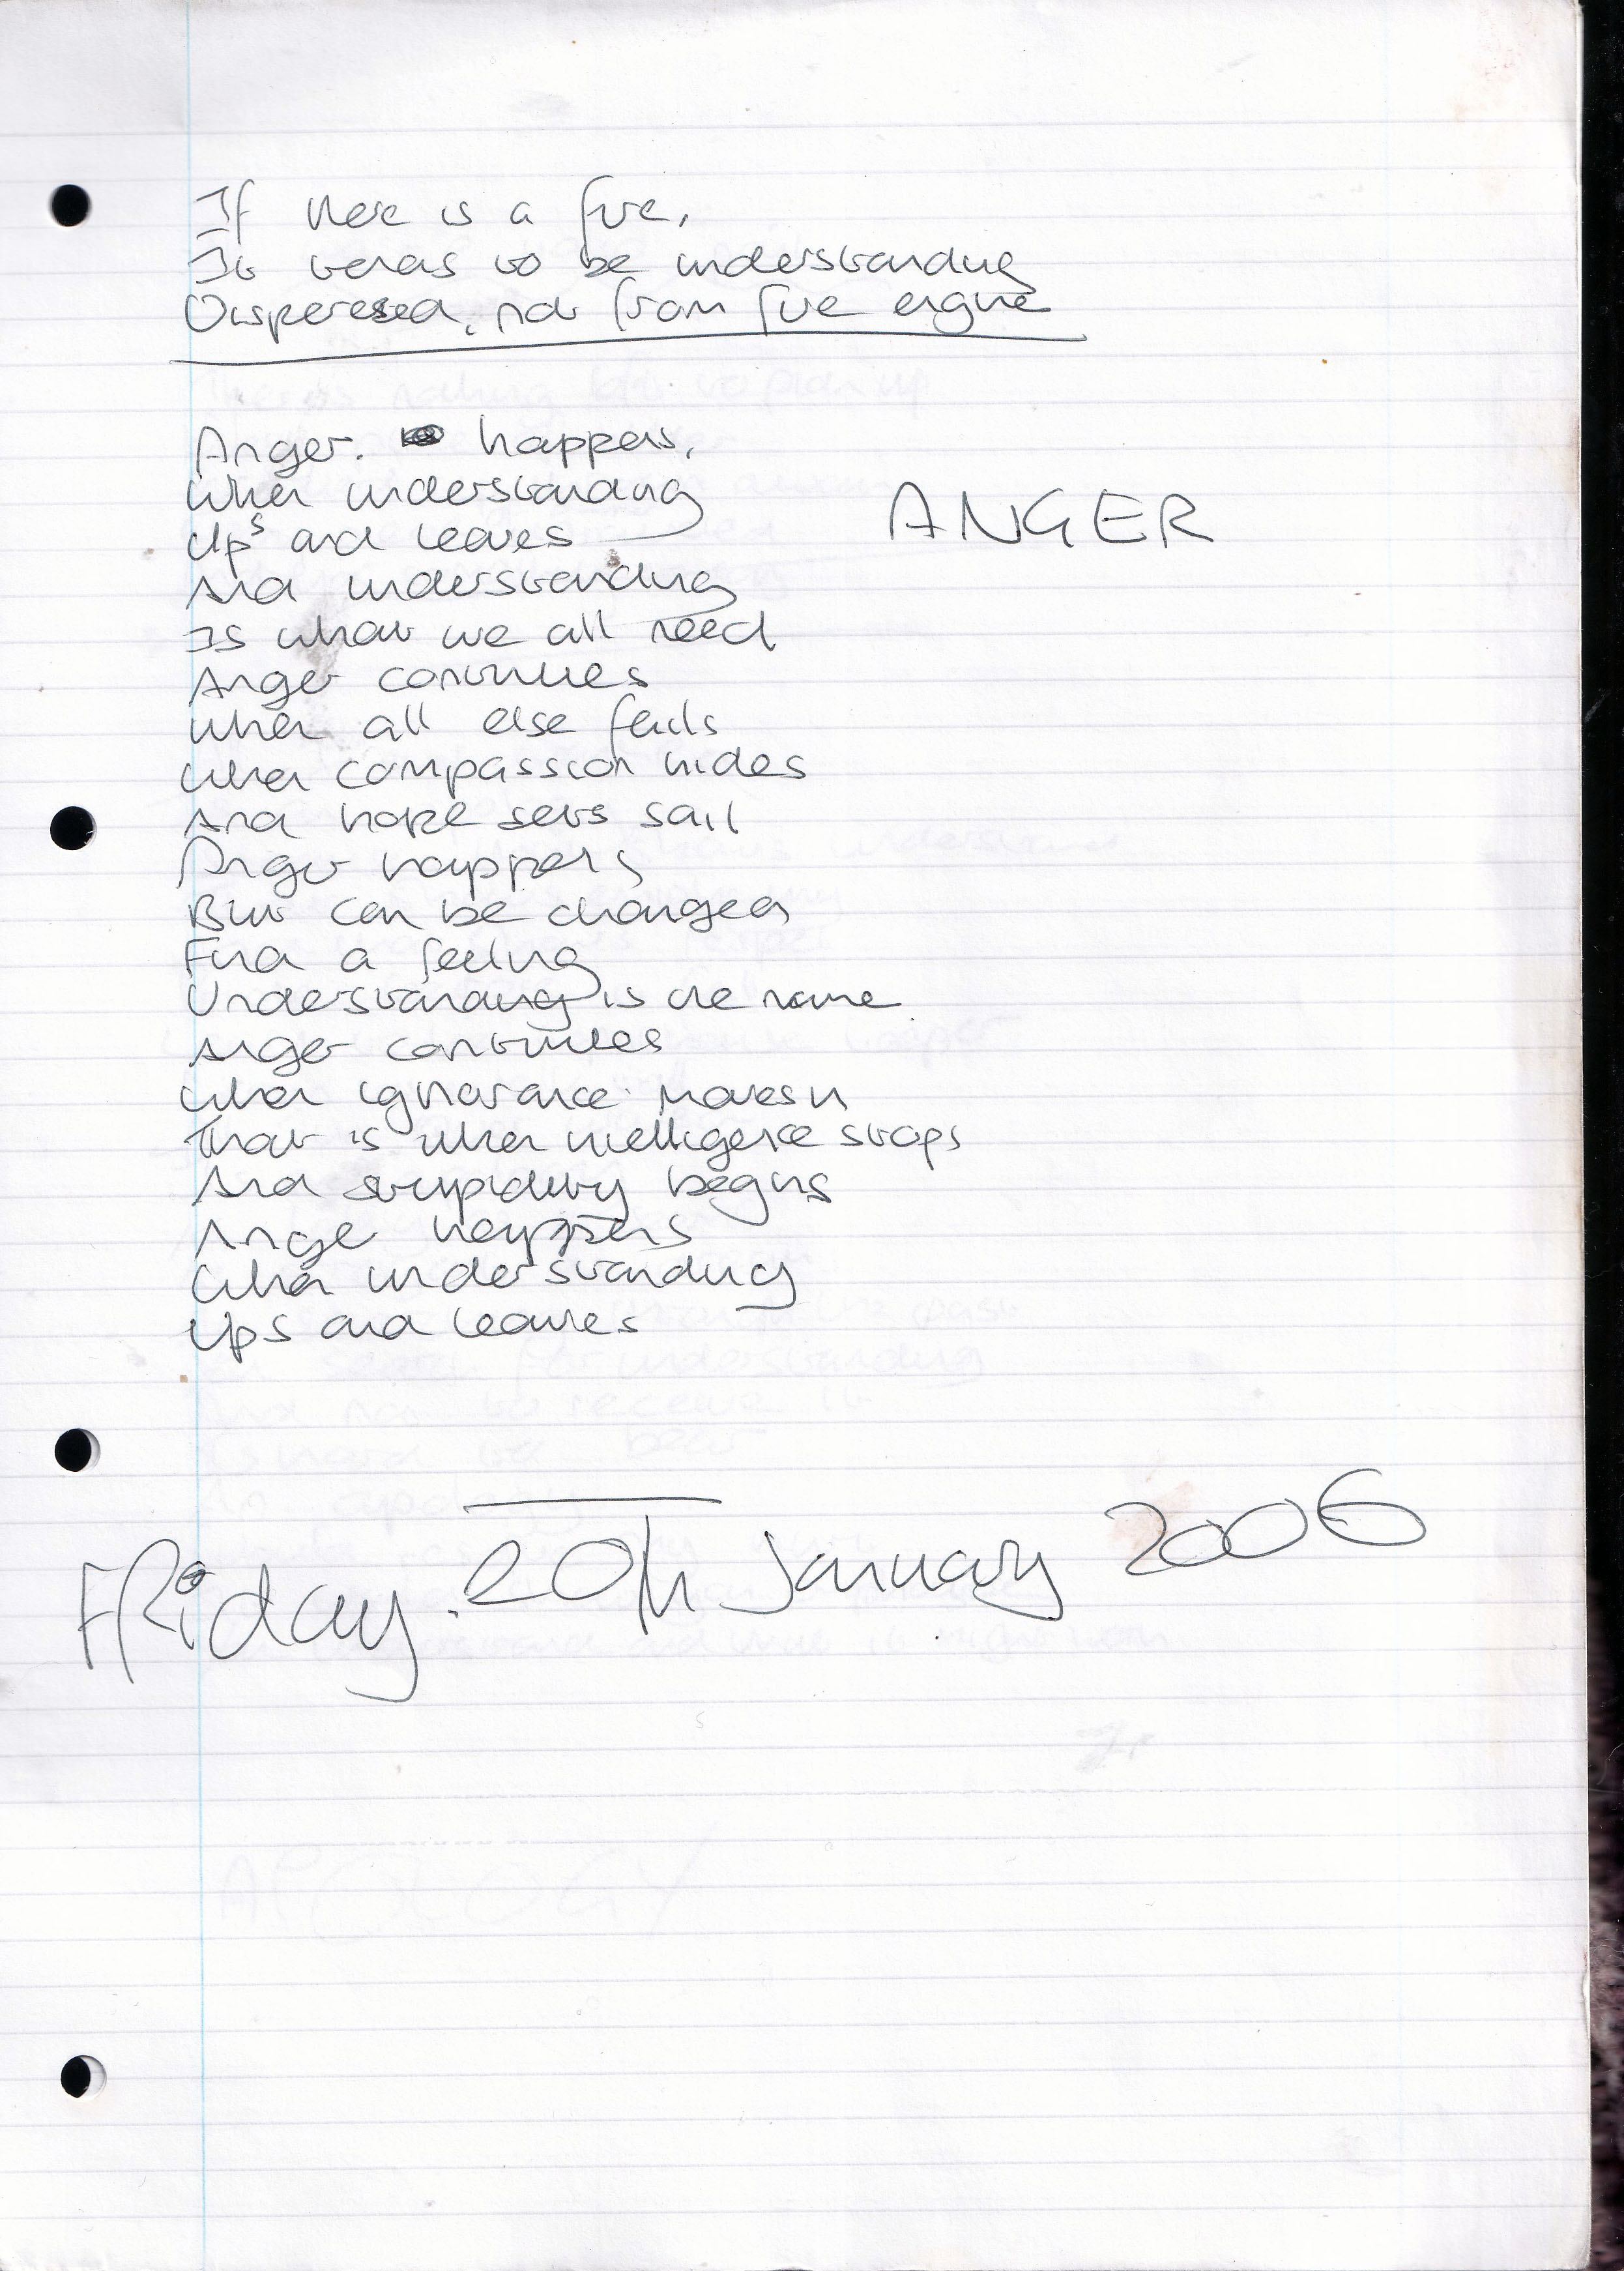 If there is a fire,
It tends to be understanding
Disperesed, not from fire engine
Anger. happens,
When understanding
Ups and leaves
ANGER
And understanding
Is what we all need
Anger continues
When all else fails
When compassion hides
And hope sets sail
Anger happens
But can be changed
Find a feeling
Understanding is the name
Anger continues
When ignorance moves in
That is when intelligence stops
And stupidity begins
Anger happens
When understanding
Ups and leaves
FRiday. 20th January 2006